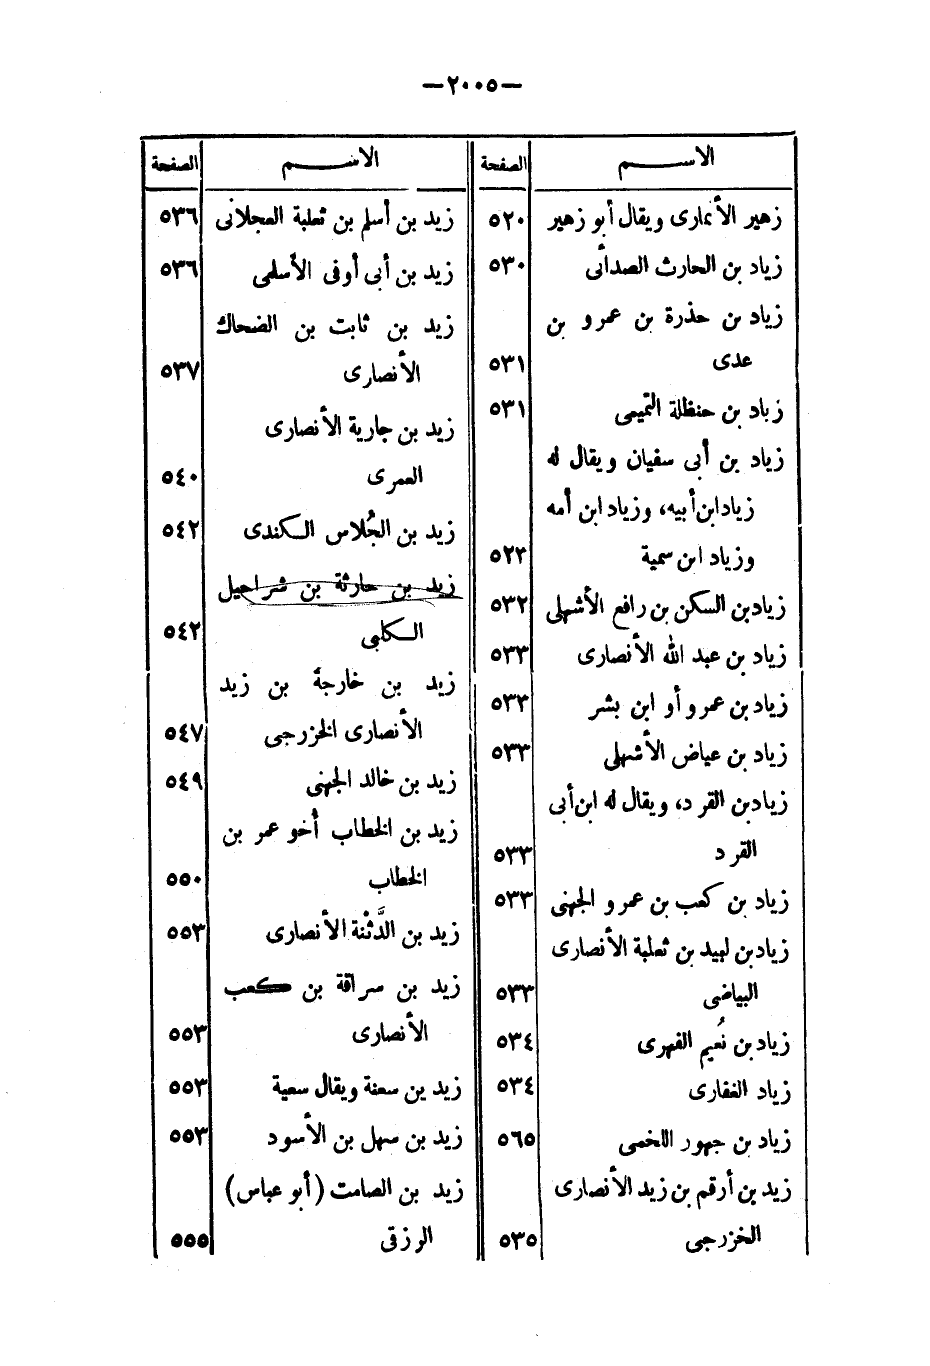 —٢٠٠٥—
الاســـم الصفحة
زهير الأنمارى ويقال أبو زهير ٥٢٠
زياد بن الحارث الصدأئى ٥٣٠
زياد بن حذرة بن عمرو بن
عدى ٥٣١
زياد بن حنظلة التميمى ٥٣١
زياد بن أبى سفيان ويقال له
زياد ابن أبيه، وزياد ابن أمه
وزياد ابن سمية ٥٢٣
زياد بن السكن بن رافع الأشهلى ٥٣٢
زياد بن عبد الله الأنصارى ٥٣٣
زياد بن عمرو أو ابن بشر ٥٣٣
زياد بن عياض الأشهلى ٥٣٣
زياد بن القرد، ويقال له ابن أبى
القرد ٥٣٣
زياد بن كعب بن عمرو الجهنى ٥٣٣
زياد بن لبيد بن ثعلبة الأنصارى
البياضى ٥٣٣
زياد بن نُعيم الفهرى ٥٣٤
زياد الغفارى ٥٣٤
زياد بن جهور اللخمى ٥٦٥
زيد بن أرقم بن زيد الأنصارى
الخزرجى ٥٣٥
الاســـم الصفحة
زيد بن أسلم بن ثعلبة العجلانى ٥٣٦
زيد بن أبى أوفى الأسلمى ٥٣٦
زيد بن ثابت بن الضحاك
الأنصارى ٥٣٧
زيد بن جارية الأنصارى
العمرى ٥٤٠
زيد بن الجُلاس الكندى ٥٤٢
زيد بن حارثة بن شراحيل
الكلبى ٥٤٢
زيد بن خارجة بن زيد
الأنصارى الخزرجى ٥٤٧
زيد بن خالد الجهنى ٥٤٩
زيد بن الخطاب أخو عمر بن
الخطاب ٥٥٠
زيد بن الدَّثْنة الأنصارى ٥٥٣
زيد بن سراقة بن كعب
الأنصارى ٥٥٣
زيد بن سعنة ويقال سعية ٥٥٣
زيد بن سهل بن الأسود ٥٥٣
زيد بن الصامت (أبو عباس)
الزرقى ٥٥٥